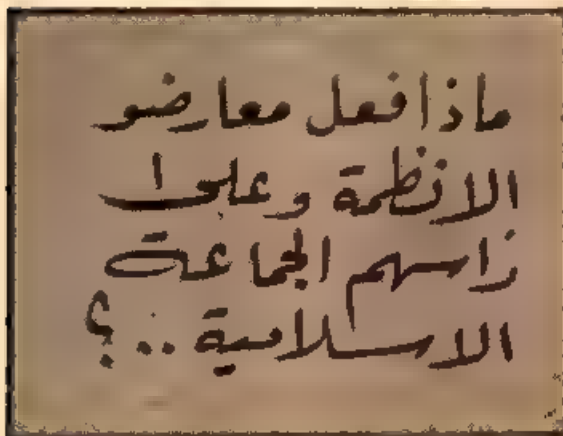 ماذا فعل معارضو
الانظمة وعلى
راسهم الجماعة
الاسلامية ..؟